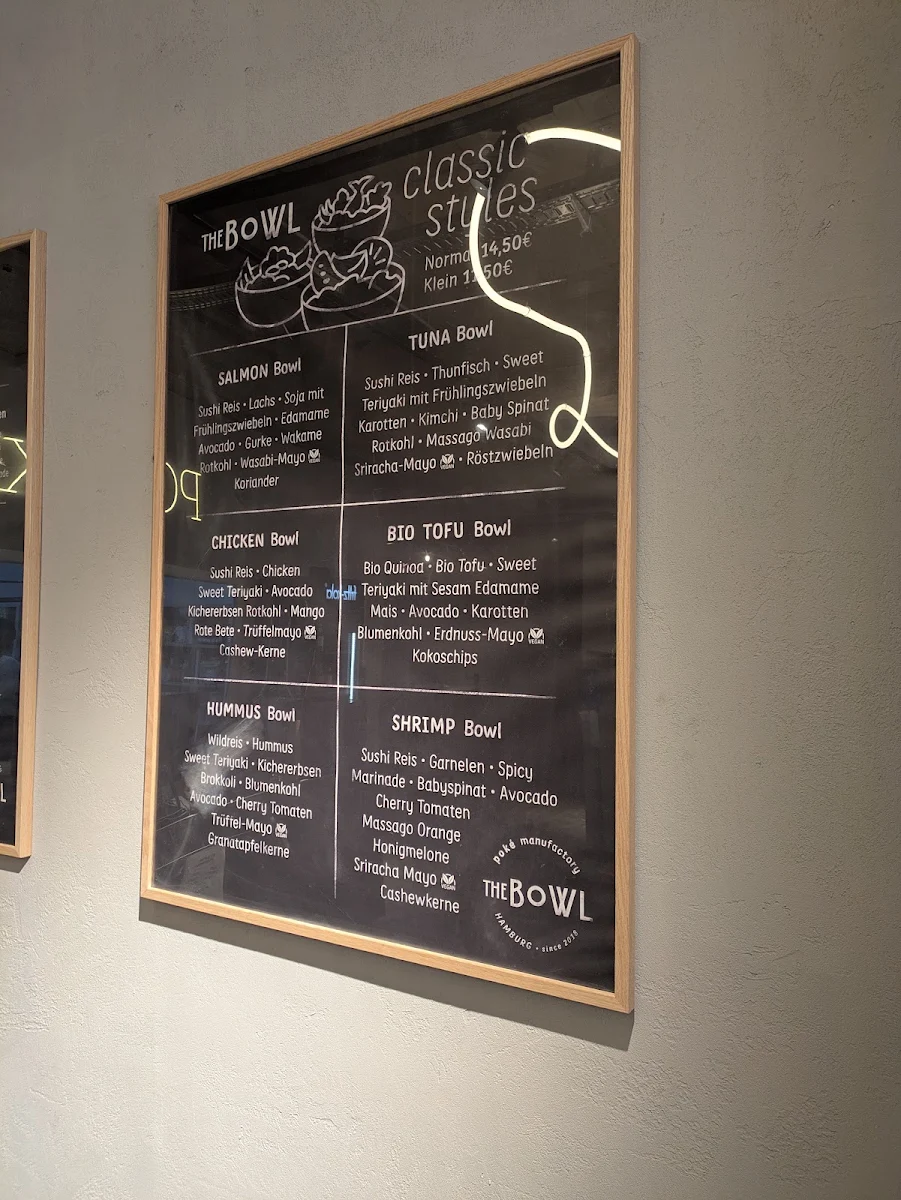 THE BOWL
classic
styles
Normal 14,50€
Klein 11,50€
SALMON Bowl
Sushi Reis • Lachs • Soja mit
Frühlingszwiebeln • Edamame
Avocado • Gurke • Wakame
Rotkohl • Wasabi-Mayo VEGAN
Koriander
TUNA Bowl
Sushi Reis • Thunfisch • Sweet
Teriyaki mit Frühlingszwiebeln
Karotten • Kimchi • Baby Spinat
Rotkohl • Massago Wasabi
Sriracha-Mayo VEGAN • Röstzwiebeln
CHICKEN Bowl
Sushi Reis • Chicken
Sweet Teriyaki • Avocado
Kichererbsen Rotkohl • Mango
Rote Bete • Trüffelmayo VEGAN
Cashew-Kerne
BIO TOFU Bowl
Bio Quinoa • Bio Tofu • Sweet
Teriyaki mit Sesam Edamame
Mais • Avocado • Karotten
Blumenkohl • Erdnuss-Mayo VEGAN
Kokoschips
HUMMUS Bowl
Wildreis • Hummus
Sweet Teriyaki • Kichererbsen
Brokkoli • Blumenkohl
Avocado • Cherry Tomaten
Trüffel-Mayo VEGAN
Granatapfelkerne
SHRIMP Bowl
Sushi Reis • Garnelen • Spicy
Marinade • Babyspinat • Avocado
Cherry Tomaten
Massago Orange
Honigmelone
Sriracha Mayo VEGAN
Cashewkerne
poké manufactory
THE BOWL
HAMBURG • since 2018